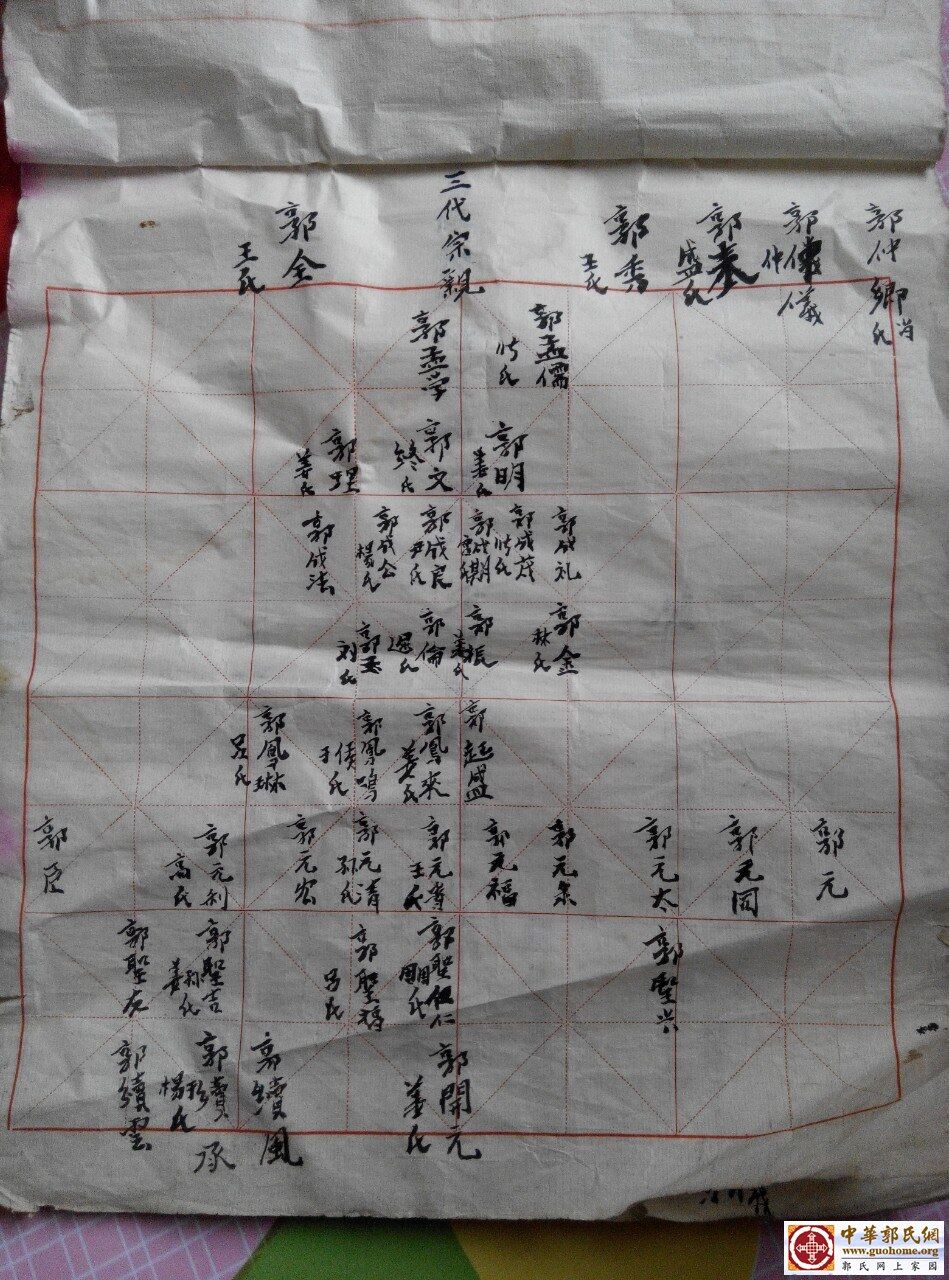 郭仲卿 氏
郭儀
仲
郭泰
盛氏
郭秀
王氏
三代宗親
郭全
王氏
郭孟儒
氏
郭孟学
郭明
姜氏
郭文
氏
郭理
姜氏
郭成礼
郭成茂
氏
郭成期
氏
郭成良
尹氏
郭成公
楊氏
郭成法
郭金
林氏
郭振
姜氏
郭倫
氏
郭玉
刘氏
郭起盛
郭鳳來
姜氏
郭鳳鳴
于氏
郭鳳琳
呂氏
郭元
郭元岡
郭元太
郭元
郭元福
郭元
王氏
郭元清
孙氏
郭元宏
郭元利
高氏
郭臣
郭聖兴
郭聖仁
氏
郭聖福
呂氏
郭聖吉
姜孙氏
郭聖友
郭開元
姜氏
郭續風
郭續承
楊氏
郭續雲
中華郭氏網
www.guohome.org
郭氏网上家园